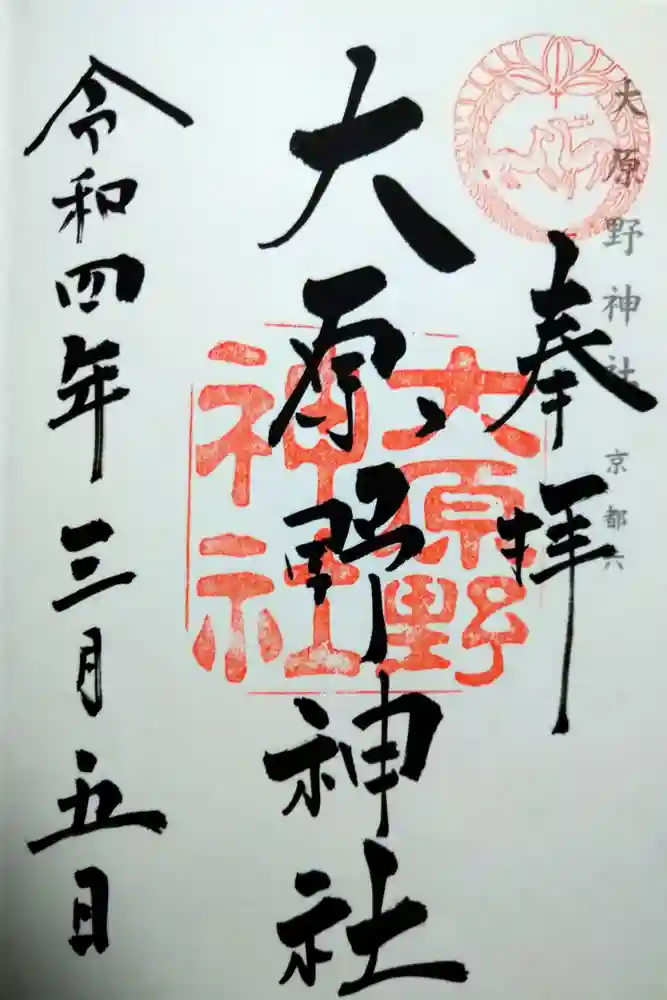 大原野神社 京都六
奉拝
大原野神社
大原野
神社
令和四年三月五日